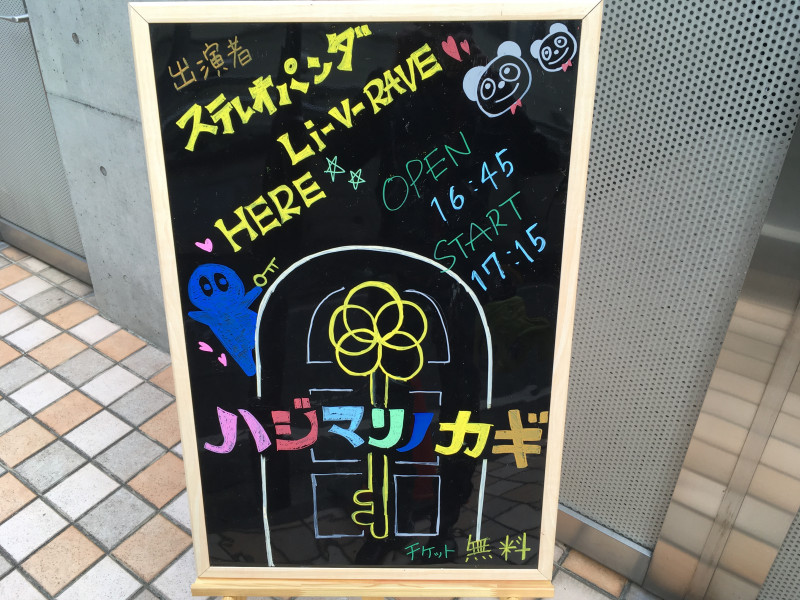 出演者
ステレオパンダ
Li-V-RAVE
HERE
OPEN
16:45
START
17:15
ハジマリノカギ
チケット 無料